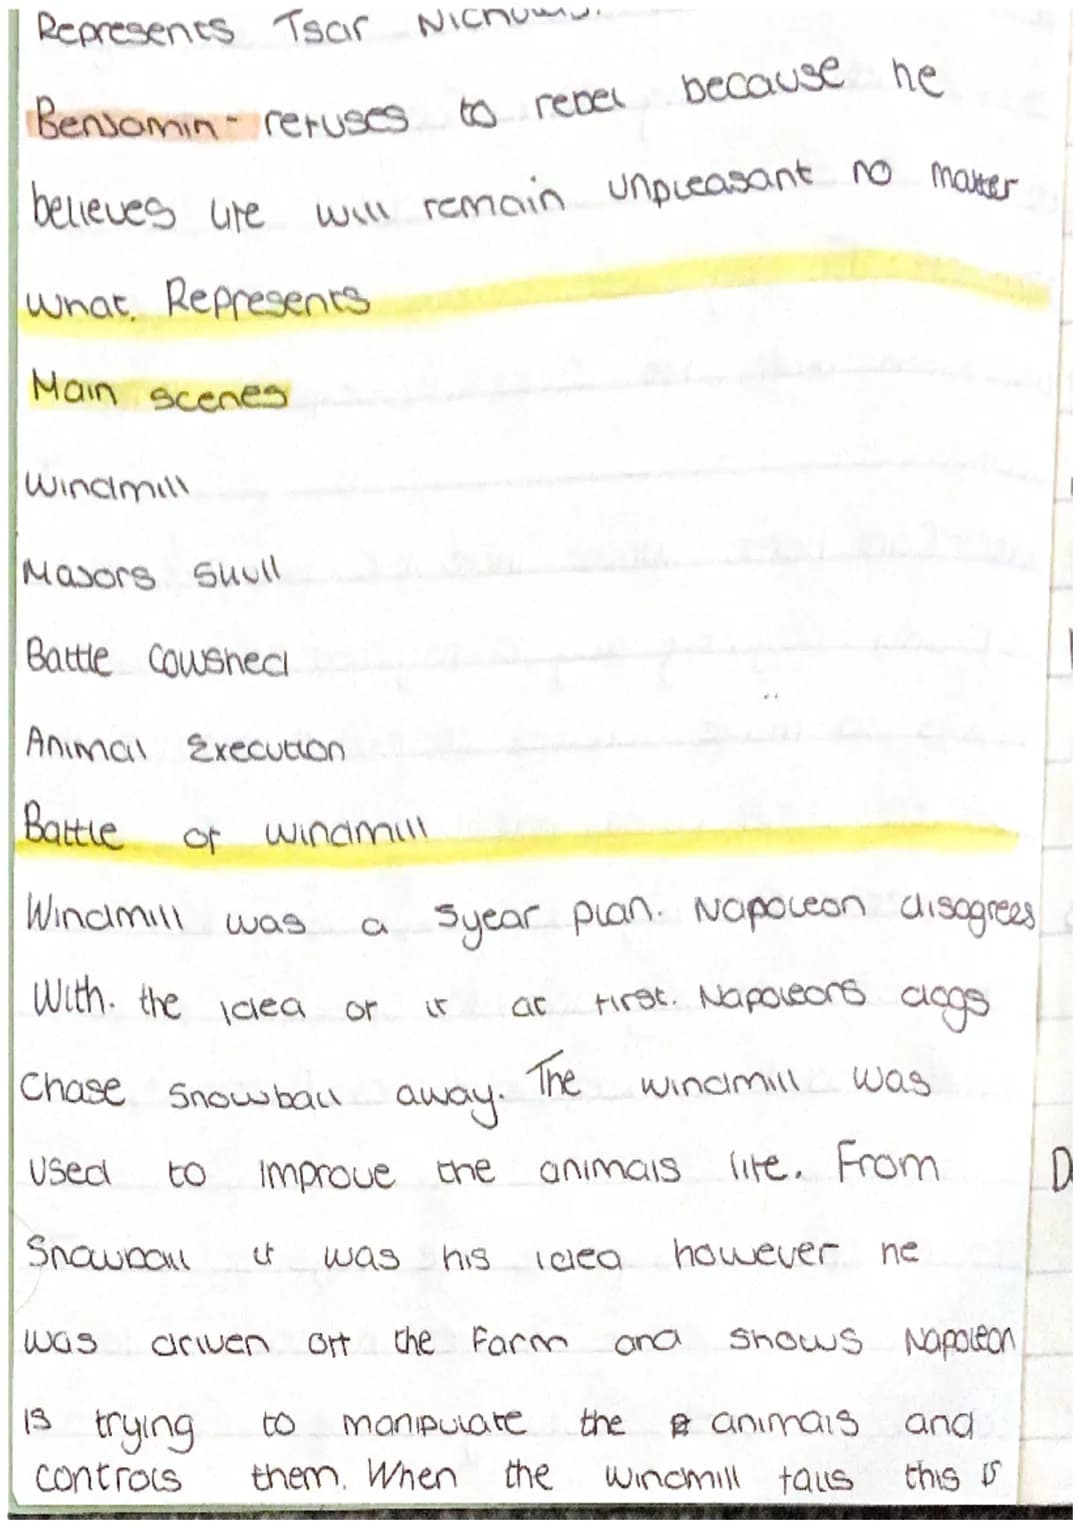 Represents Tsar Nicholas.
Benjamin - refuses to rebel because he
believes life will remain unpleasant no matter
what. Represents
Main scenes
Windmill
Majors Skull
Battle Cowshed
Animal Execution
Battle of windmill
Windmill was a 5year plan. Napoleon disagrees
With. the idea of it at first. Napoleons dogs
Chase Snowball away. The windmill was
used to improve the animals life. From
Snowball it was his idea however he
was driven off the farm and shows Napoleon
is trying to manipulate the animals and
controls them. When the windmill falls this is
D